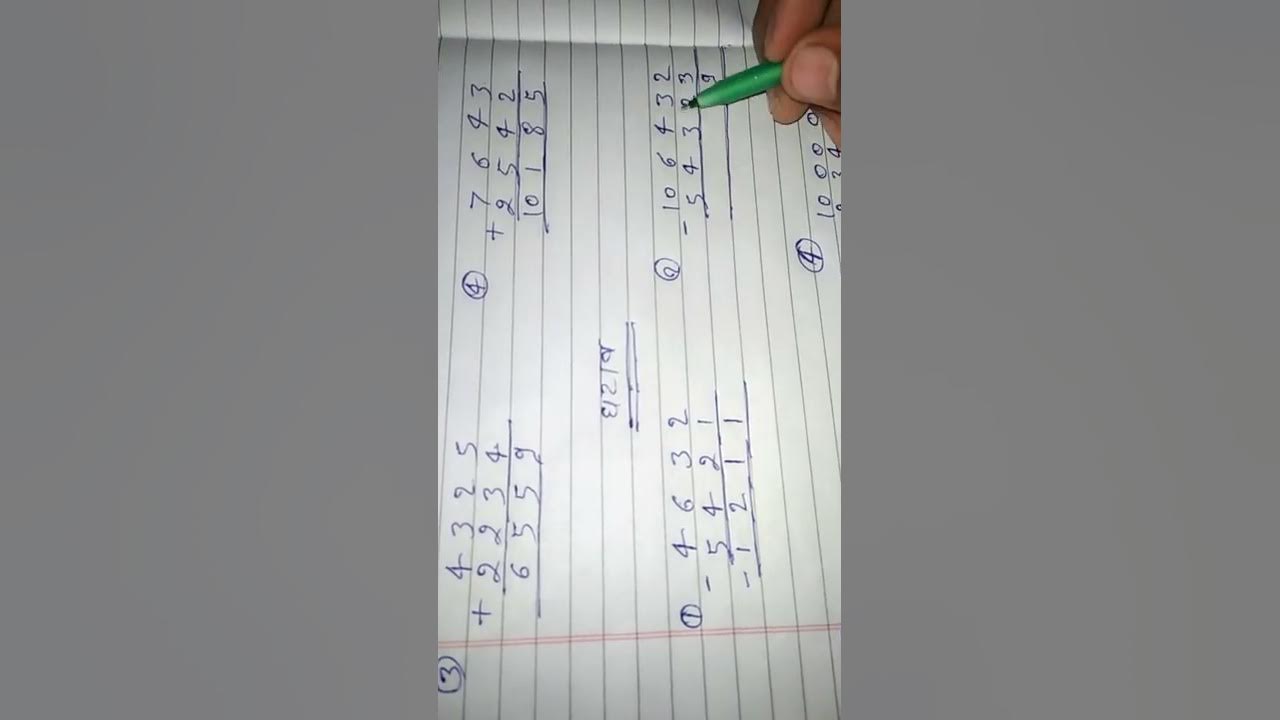 ③ 4 3 2 5
+ 2 2 3 4
6 5 5 9
④ + 7 6 4 3
2 5 4 2
10 1 8 5
घटाव
① 4 6 3 2
- 5 4 2 1
- 1 2 1 1
② 10 6 4 3 2
- 5 4 3 2 3
9
④ 10 0 0 0